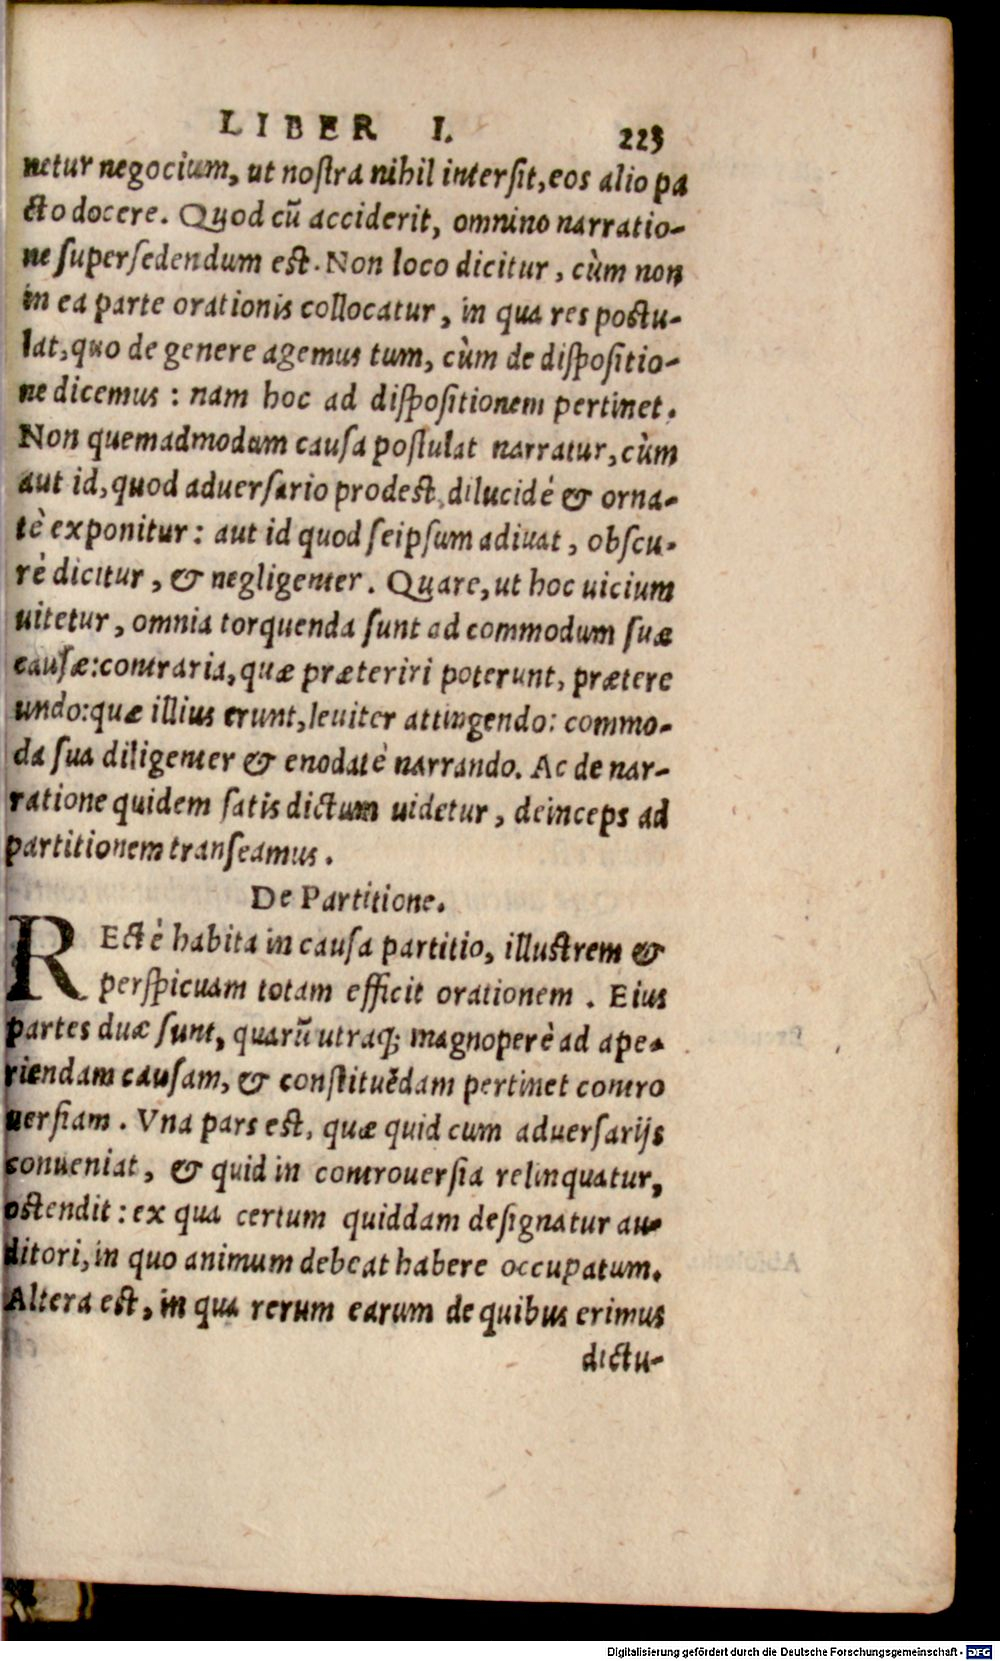 LIBER I. 223
netur negocium, ut noſtra nihil interſit, eos alio pa
cto docere. Quod cũ acciderit, omnino narratio-
ne ſuperſedendum eſt. Non loco dicitur, cùm non
in ea parte orationis collocatur, in qua res poſtu-
lat, quo de genere agemus tum, cùm de diſpoſitio-
ne dicemus: nam hoc ad diſpoſitionem pertinet.
Non quemadmodum cauſa poſtulat narratur, cùm
aut id, quod aduerſario prodeſt, dilucidè & orna-
tè exponitur: aut id quod ſeipſum adiuat, obſcu-
rè dicitur, & negligenter. Quare, ut hoc uicium
uitetur, omnia torquenda ſunt ad commodum ſuæ
cauſæ: contraria, quæ præteriri poterunt, prætere
undo: quæ illius erunt, leuiter attingendo: commo-
da ſua diligenter & enodatè narrando. Ac de nar-
ratione quidem ſatis dictum uidetur, deinceps ad
partitionem tranſeamus.
De Partitione.
REctè habita in cauſa partitio, illuſtrem &
perſpicuam totam efficit orationem. Eius
partes duæ ſunt, quarũ utraq; magnoperè ad ape-
riendam cauſam, & conſtituẽdam pertinet contro
uerſiam. Vna pars eſt, quæ quid cum aduerſarijs
conueniat, & quid in controuerſia relinquatur,
oſtendit: ex qua certum quiddam deſignatur au-
ditori, in quo animum debeat habere occupatum.
Altera eſt, in qua rerum earum de quibus erimus
dictu-
Digitalisierung gefördert durch die Deutsche Forschungsgemeinschaft - DFG